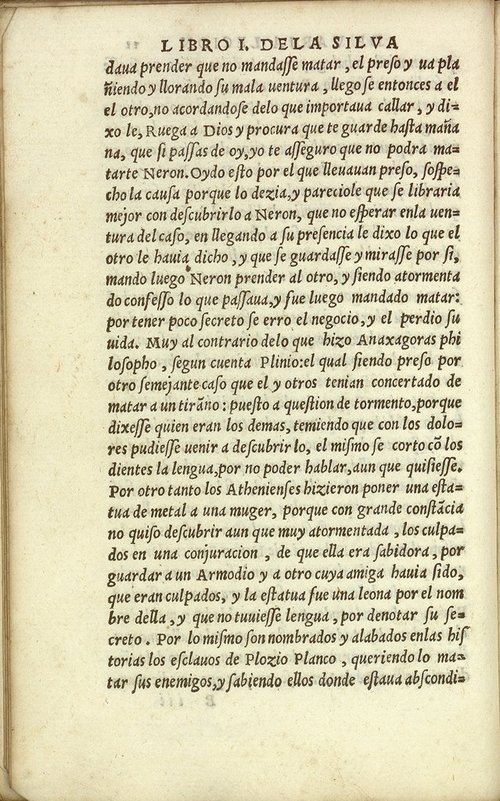 LIBRO I. DE LA SILVA
daua prender que no mandaſſe matar, el preſo y ua pla
ñiendo y llorando ſu mala uentura, llegoſe entonces a el
el otro, no acordandoſe delo que importaua callar, y di=
xo le, Ruega a Dios y procura que te guarde haſta maña
na, que ſi paſſas de oy, yo te aſſeguro que no podra ma=
tarte Neron. Oydo eſto por el que lleuauan preſo, ſoſpe=
cho la cauſa porque lo dezia, y pareciole que ſe libraria
mejor con deſcubrirlo a Neron, que no eſperar enla uen=
tura del caſo, en llegando a ſu preſencia le dixo lo que el
otre le hauia dicho, y que ſe guardaſſe y miraſſe por ſi,
mando luego Neron prender al otro, y ſiendo atormenta
do confeſſo lo que paſſaua, y fue luego mandado matar:
por tener poco ſecreto ſe erro el negocio, y el perdio ſu
uida. Muy al contrario delo que hizo Anaxagoras phi
loſopho, ſegun cuenta Plinio: el qual ſiendo preſo por
otro ſemejante caſo que el y otros tenian concertado de
matar a un tirāno: pueſto a queſtion de tormento, porque
dixeſſe quien eran los demas, temiendo que con los dolo=
res pudieſſe uenir a deſcubrirlo, el miſmo ſe corto cō los
dientes la lengua, por no poder hablar, aun que quiſieſſe.
Por otro tanto los Athenienſes hizieron poner una eſta=
tua de metal a una muger, porque con grande conſtācia
no quiſo deſcubrir aun que muy atormentada, los culpa=
dos en una conjuracion, de que ella era ſabidora, por
guardar a un Armodio y a otro cuya amiga hauia ſido,
que eran culpados, y la eſtatua fue una leona por el nom
bre della, y que no tuuieſſe lengua, por denotar ſu ſe=
creto. Por lo miſmo ſon nombrados y alabados enlas hiſ
torias los eſclauos de Plozio Planco, queriendo lo ma=
tar ſus enemigos, y ſabiendo ellos donde eſtaua abſcondi=